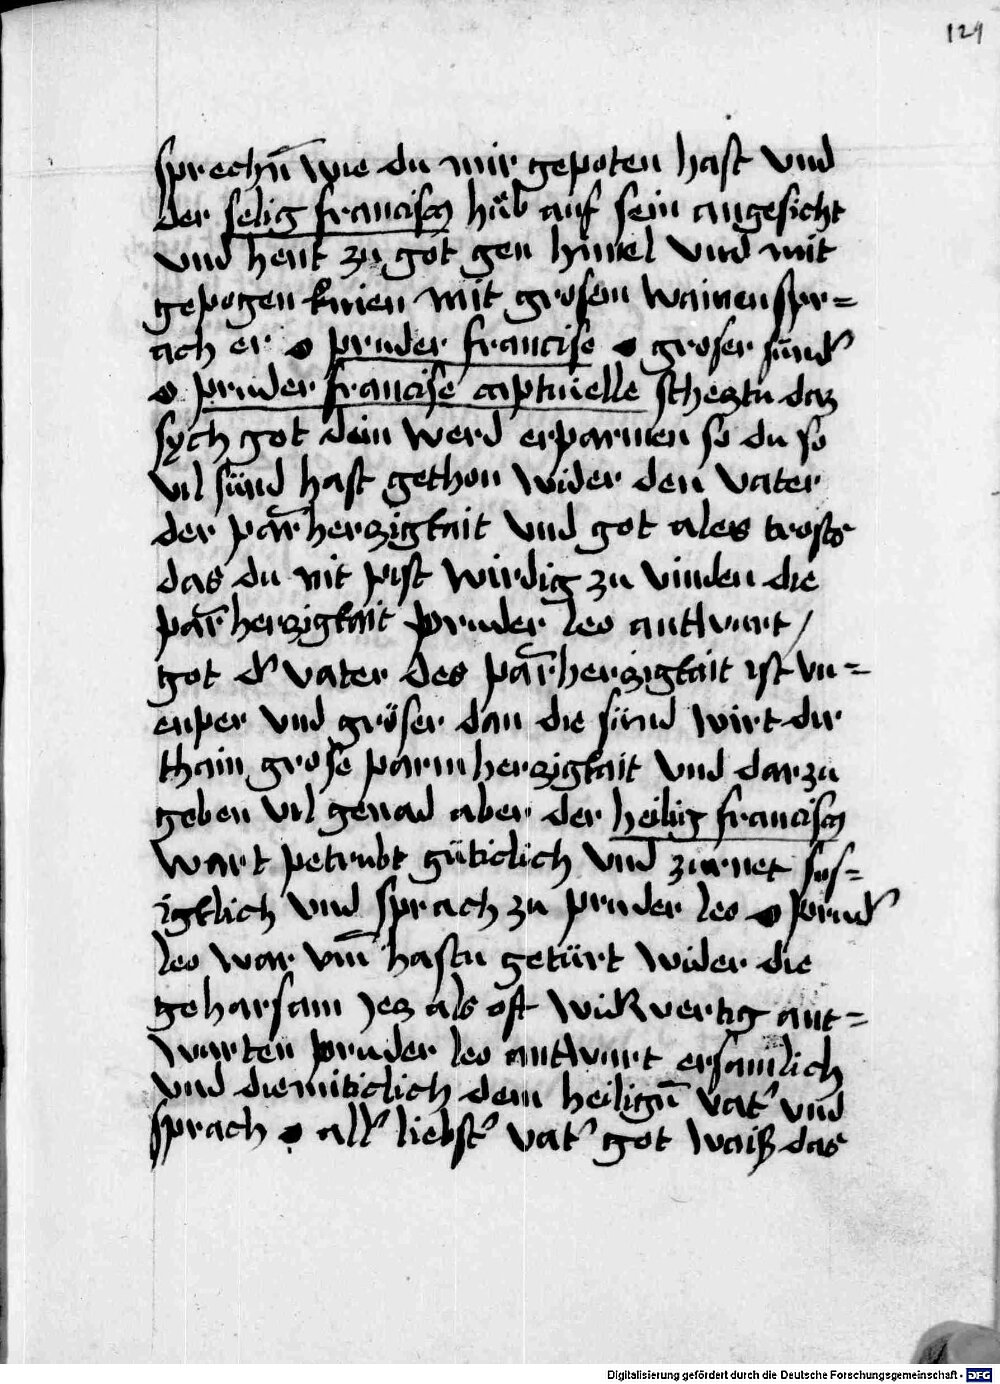 129
sprechn̄ wie du mir gepoten hast vnd
der selig francisc hůb auf sein angesicht
vnd hent zu got gen himel vnd mit
gepogen knien mit grosem wainen spr=
ach er o pruder francise o groser sünd'
o pruder francise captiuelle schetztu daz
sych got dein werd erparmen so du so
vil sünd hast gethon wider den vater
der par̄herzigkait vnd got ales trosts
das du nit pist wirdig zu vinden die
par̄herzigkait pruder leo antwurt /
got d' vater des par̄herzigkait ist vn=
enper vnd gröser dan die sünd wirt dir
thain grose parmherzigkait vnd darzu
geben vil genad aber der heilig francisc
wart petrubt güticlich vnd zurnet sus=
igklich vnd sprach zu pruder leo o prud'
leo war vm̄ hastu getürt wider die
geharsam Jez als oft widerwertig ant=
wurten pruder leo antwurt ersamlich
vnd diemiticlich dem heilign̄ vat' vnd
sprach o all' liebst' vat' got waiß das
Digitalisierung gefördert durch die Deutsche Forschungsgemeinschaft - DFG